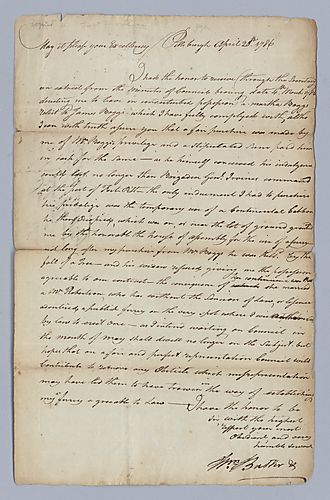 May it please your Excellency Pittsburgh April 28th 1786
I had the honor to receive through the Secretary
an extract from the Minutes of Council bearing date
directing me to leave in uninterrupted possession Martha Boggs
Relict of James Boggs which I have fully complyed with altho
I can with truth assure you that a fair purchase was made by
me of Mr Boggs's privilege and a stipulated sum paid him
in cash for the same — as he himself conceived his indulgence
to last no longer than Brigadier Genl Irvines command
at the post of Fort Pitt — the only inducement I had to purchase
his priviledge was the temporary use of a Continental Cabbin
he then occupied, which was on, or near the lot of ground granted
me by the honorable the house of assembly for the use of a ferry
not long after my purchase from Mr Boggs he was kill'd by the
fall of a Tree — and his widow refused giving me the possession
agreeable to our contract — the consequence
a Mr Robertson who has without the Sanction of law or license
established a publick ferry on the very spot where I am
by law to erect one — as I intend waiting on Council in
the month of May shall dwell no longer on the Subject but
hope that on a fair and perfect representation Council will
contribute to remove any Obsticle which misrepresentation
may have led them to have thrown in the way of establishing
my ferry agreeable to law — I have the honor to be
Sir with the highest
respect your most
Obedient and very
humble Servant
Wm Butler